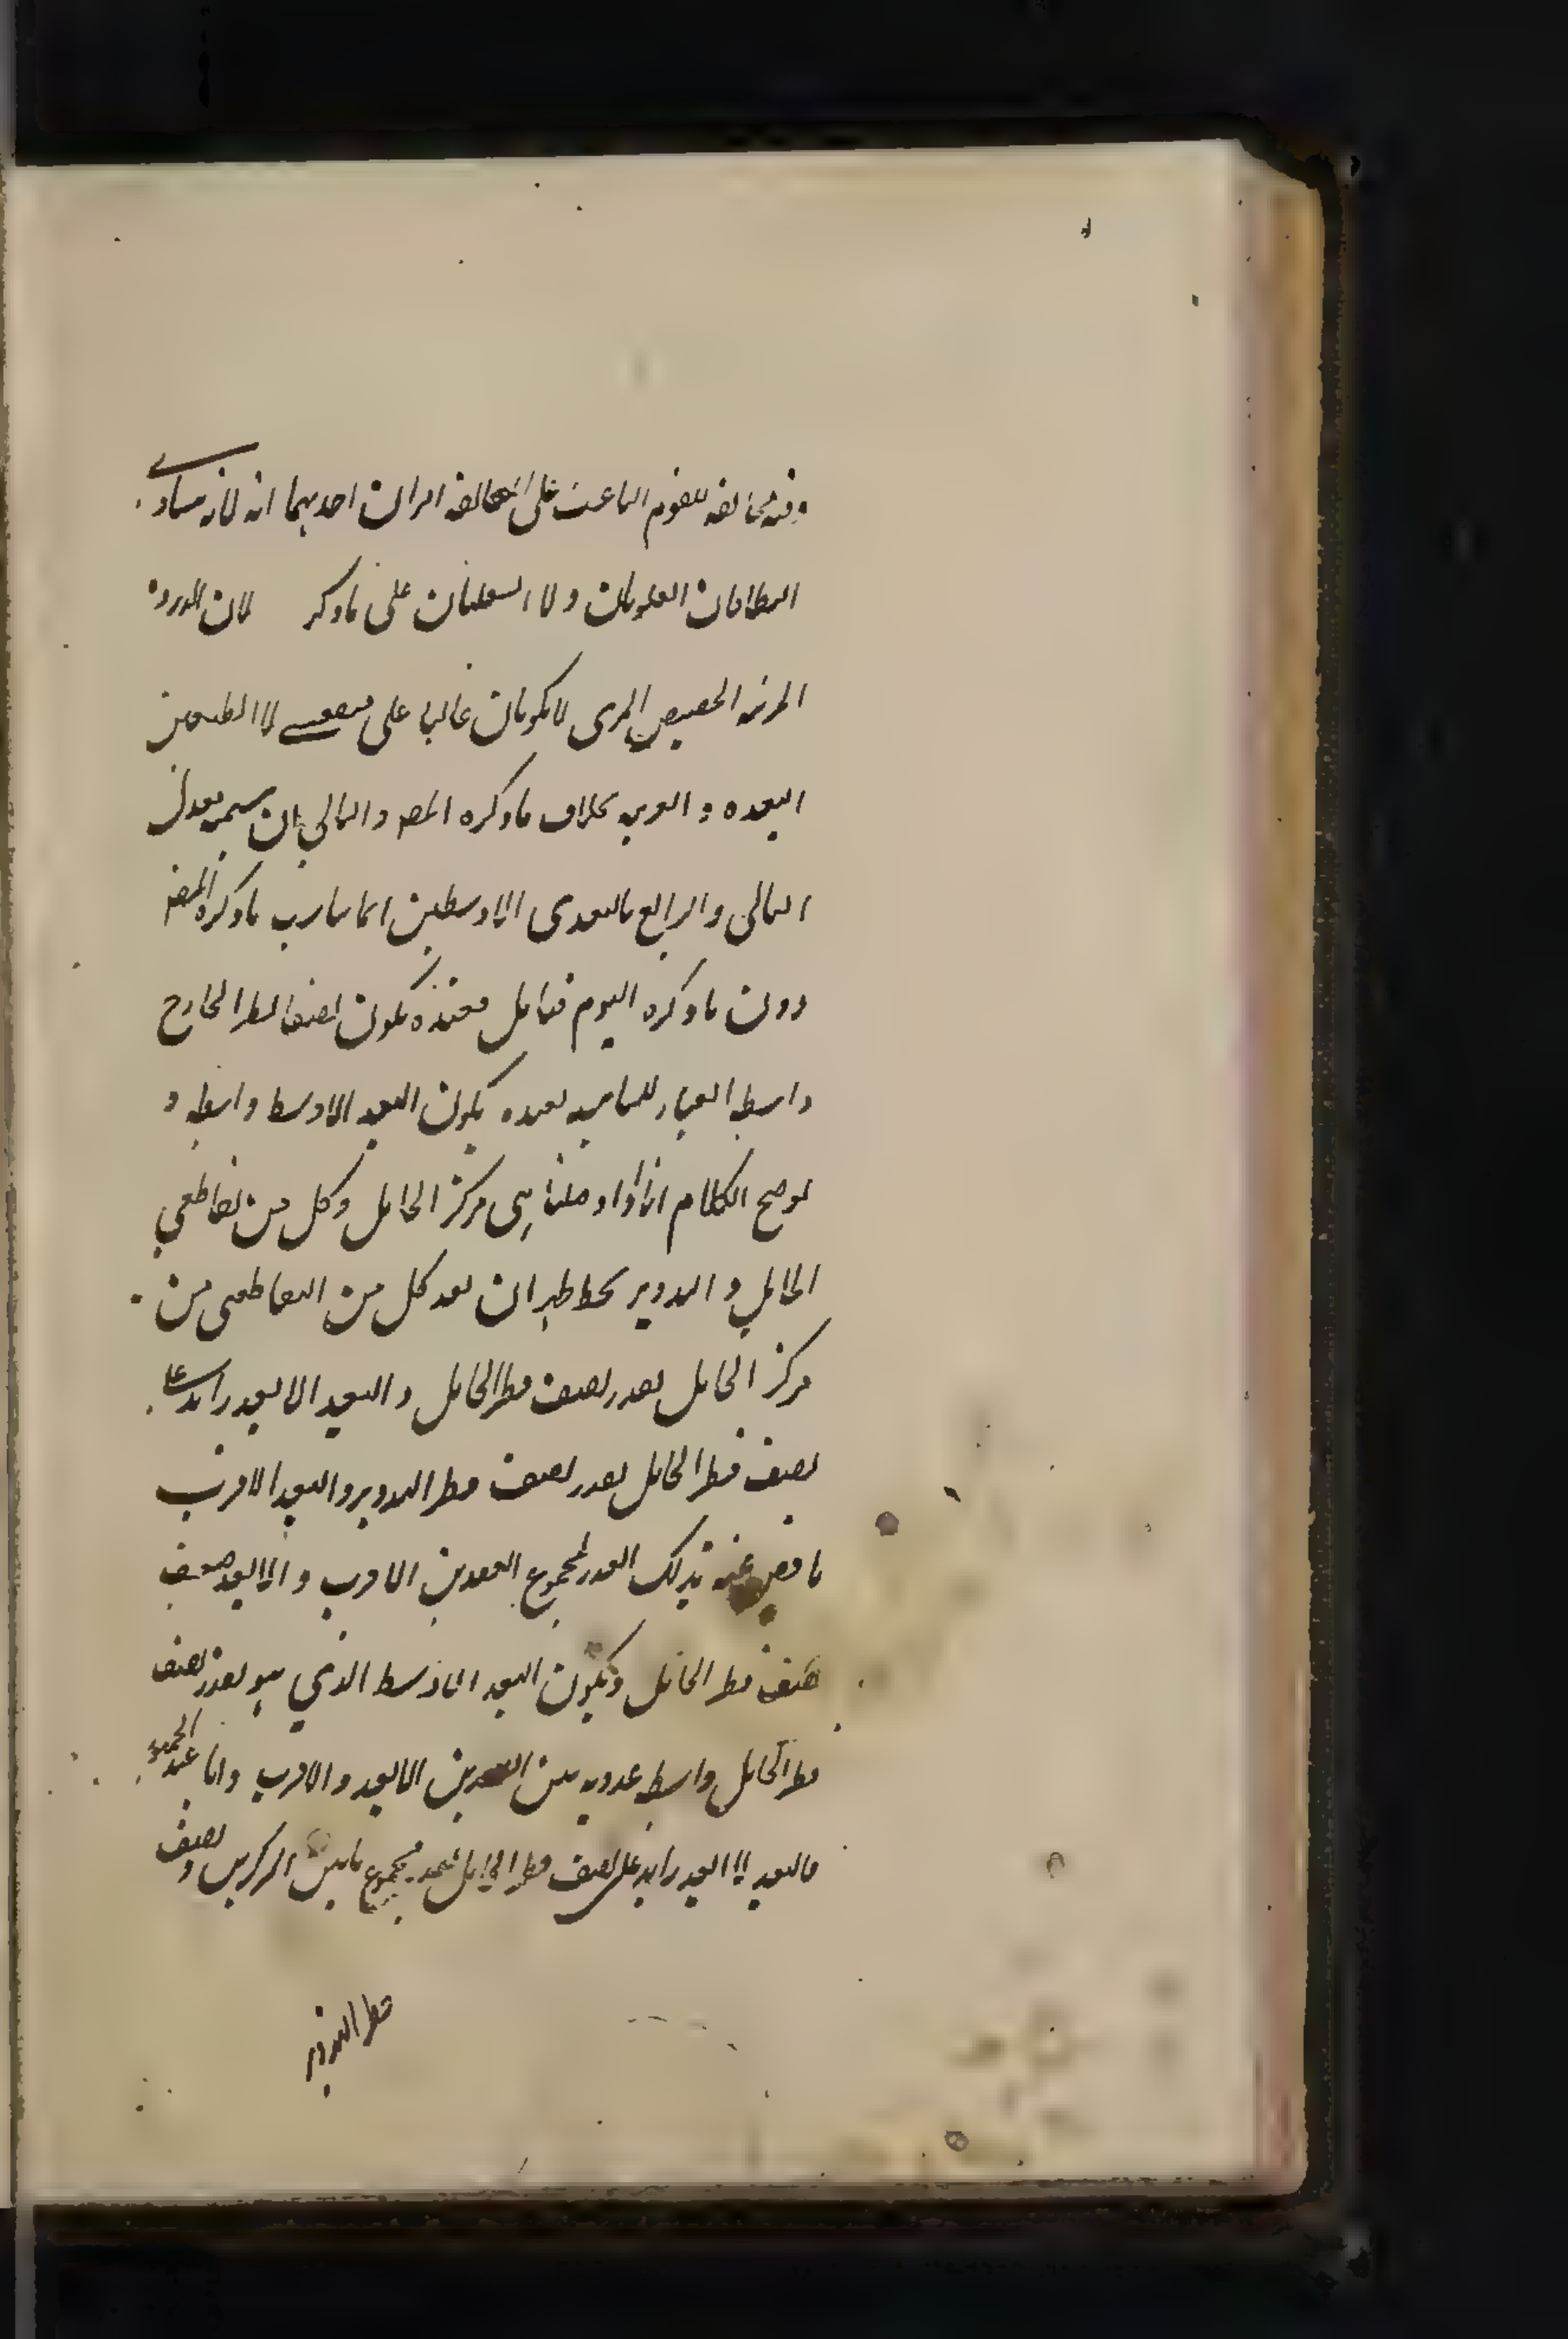 وفيه مخالفة للقوم الباعث على المخالفة امران احديهما انه لا يتساوى
النطاقان العلويان ولا السفليان على ما ذكر لان الذروة
المرئية الحضيض المرئي لا يكونان غالبا على منتصفى لا النطاقين
البعيدة والقريبة بخلاف ما ذكره المصـ والثاني ان تسمية مبدئى
الثانى والرابع بالبعدى الاوسطين انما يناسب ما ذكره المصـ
دون ما ذكره القوم فتامل فحينئذ يكون نصف القطر الخارج
واسطة العبارة بعده يكون البعد الاوسط واسطة و
توضح الكلام انا اذا وصلنا بين مركز الحامل وكل من تقاطعي
الحامل والتدوير بخط ظهر ان بعد كل من التقاطعين من
مركز الحامل بقدر نصف قطر الحامل والبعد الابعد زايد على
نصف قطر الحامل بقدر نصف قطر التدوير والبعد الاقرب
ناقص عنه بذلك القدر فمجموع البعدين الاقرب والابعد ضعف
نصف قطر الحامل ويكون البعد الاوسط الذي هو بقدر نصف
قطر الحامل واسطة عددية بين البعدين الابعد والاقرب واما عند الجمهور
فالبعد الابعد زايد على نصف قطر الحامل بقدر مجموع ما بين المركزين ونصف
قطر التدوير